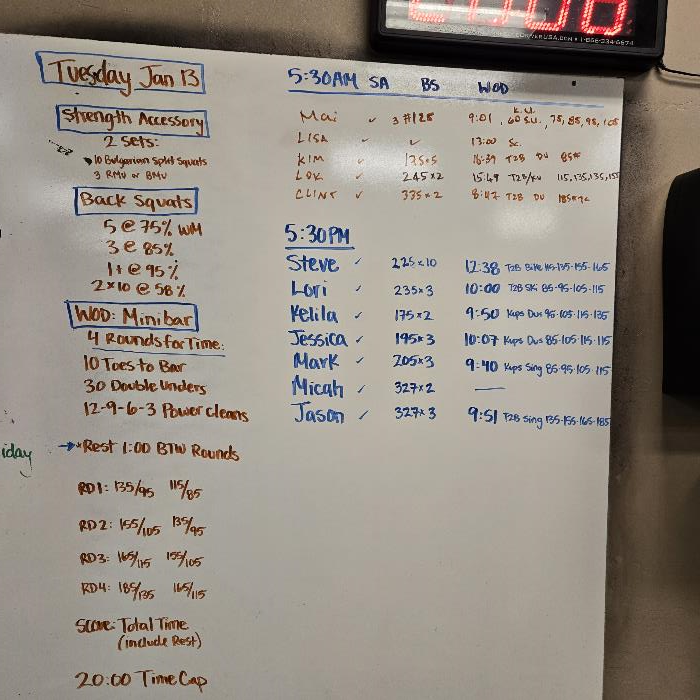 Tuesday Jan 13
Strength Accessory
2 Sets:
10 Bulgarian Split Squats
3 RMU or BMU
Back Squats
5 @ 75% WM
3 @ 85%
1+ @ 95%
2x10 @ 58%
WOD: Minibar
4 Rounds for Time:
10 Toes to Bar
30 Double Unders
12-9-6-3 Power cleans
*Rest 1:00 BTW Rounds
RD1: 135/95 115/85
RD2: 155/105 135/95
RD3: 165/115 155/105
RD4: 185/135 165/115
Score: Total Time
(include Rest)
20:00 Time Cap
iday
5:30AM SA BS WOD
Mai ✓ 3 # 125 9:01 , 60 S.U. , 75, 85, 95, 105
LISA ✓ ✓ 13:00 Sc.
KIM ✓ 16:39 T2B DU 85#
✓ 245x2 15:49 115,135,135,155
CLINT ✓ 335x2 T2B DU
5:30PM
Steve ✓ 225x10 12:38 T2B Bike 115-135-155-165
Lori ✓ 235x3 10:00 T2B Ski 85-95-105-115
Kelila ✓ 175x2 9:50 Kups Dus 95-105-115-135
Jessica ✓ 195x3 10:07 Kups Dus 85-105-115-115
Mark ✓ 205x3 9:40 Kups Sing 85-95-105-115
Micah ✓ 327x2 —
Jason ✓ 327x3 9:51 T2B Sing 135-155-165-185